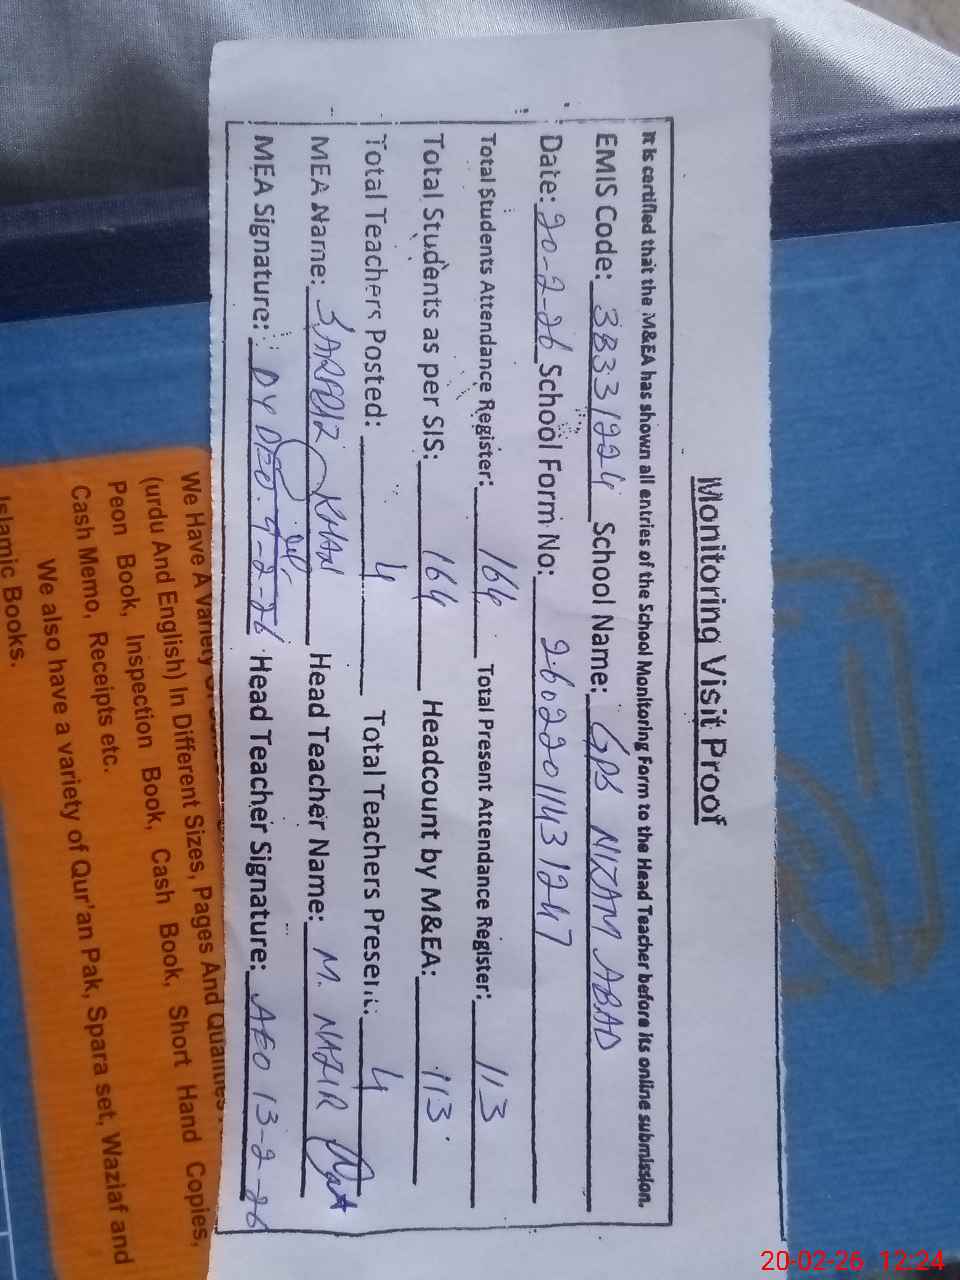 Monitoring Visit Proof
It is certified that the M&EA has shown all entries of the School Monitoring Form to the Head Teacher before its online submission.
EMIS Code: 38331224 School Name: GPS NIZAM ABAD
Date: 20-2-26 School Form No: 26022011431247
Total Students Attendance Register: 164 Total Present Attendance Register: 113
Total Students as per SIS: 164 Headcount by M&EA: 113
Total Teachers Posted: 4 Total Teachers Present: 4
MEA Name: SARFRAZ KHAN Head Teacher Name: M. NAZIR
MEA Signature: DY DEO. 9-2-26 Head Teacher Signature: AEO 13-2-26
We Have A Variety
Pages And Qualities
(urdu And English) In Different Sizes,
Peon Book, Inspection Book, Cash Book, Short Hand Copies,
Cash Memo, Receipts etc.
We also have a variety of Qur'an Pak, Spara set, Waziaf and
Islamic Books.
20-02-26 12:24